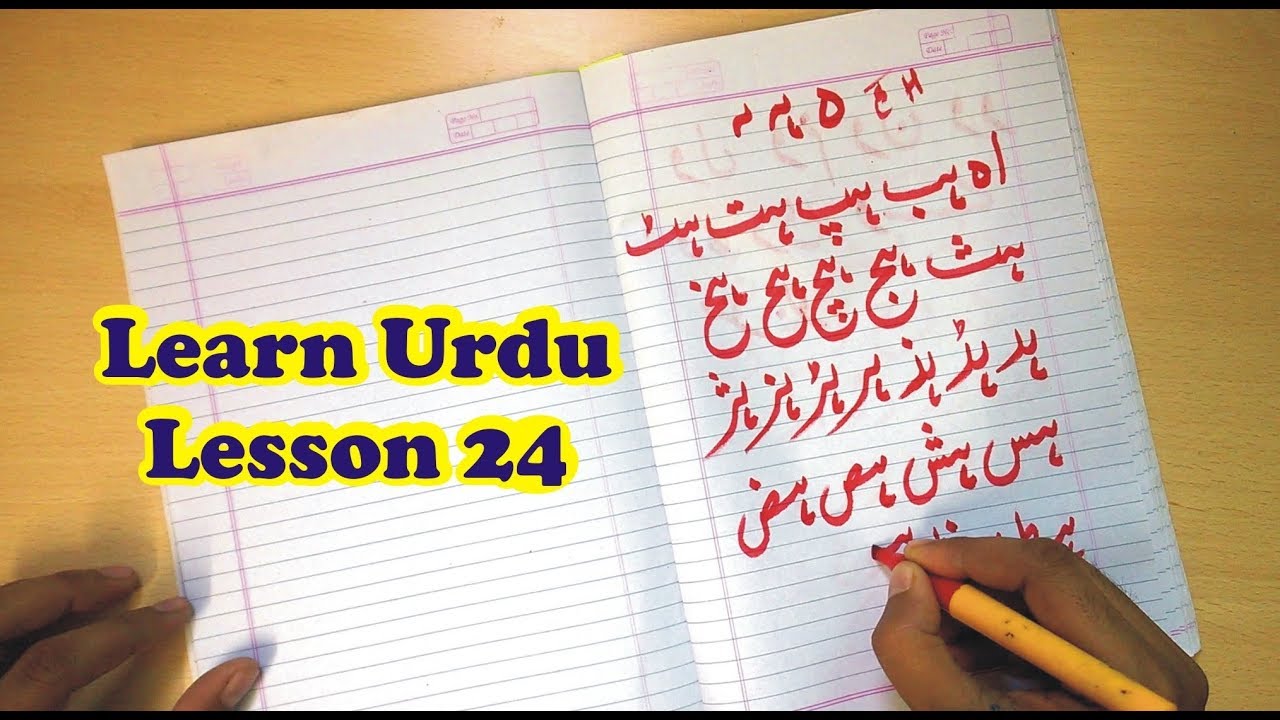 Page No.
Date
Page No.
Date
Learn Urdu
Lesson 24
H ہ
اہ ہب ہپ ہت ہٹ
ہث ہج ہچ ہح ہخ
ہد ہڈ ہذ ہر ہڑ ہز ہژ
ہس ہش ہص ہض
ہط